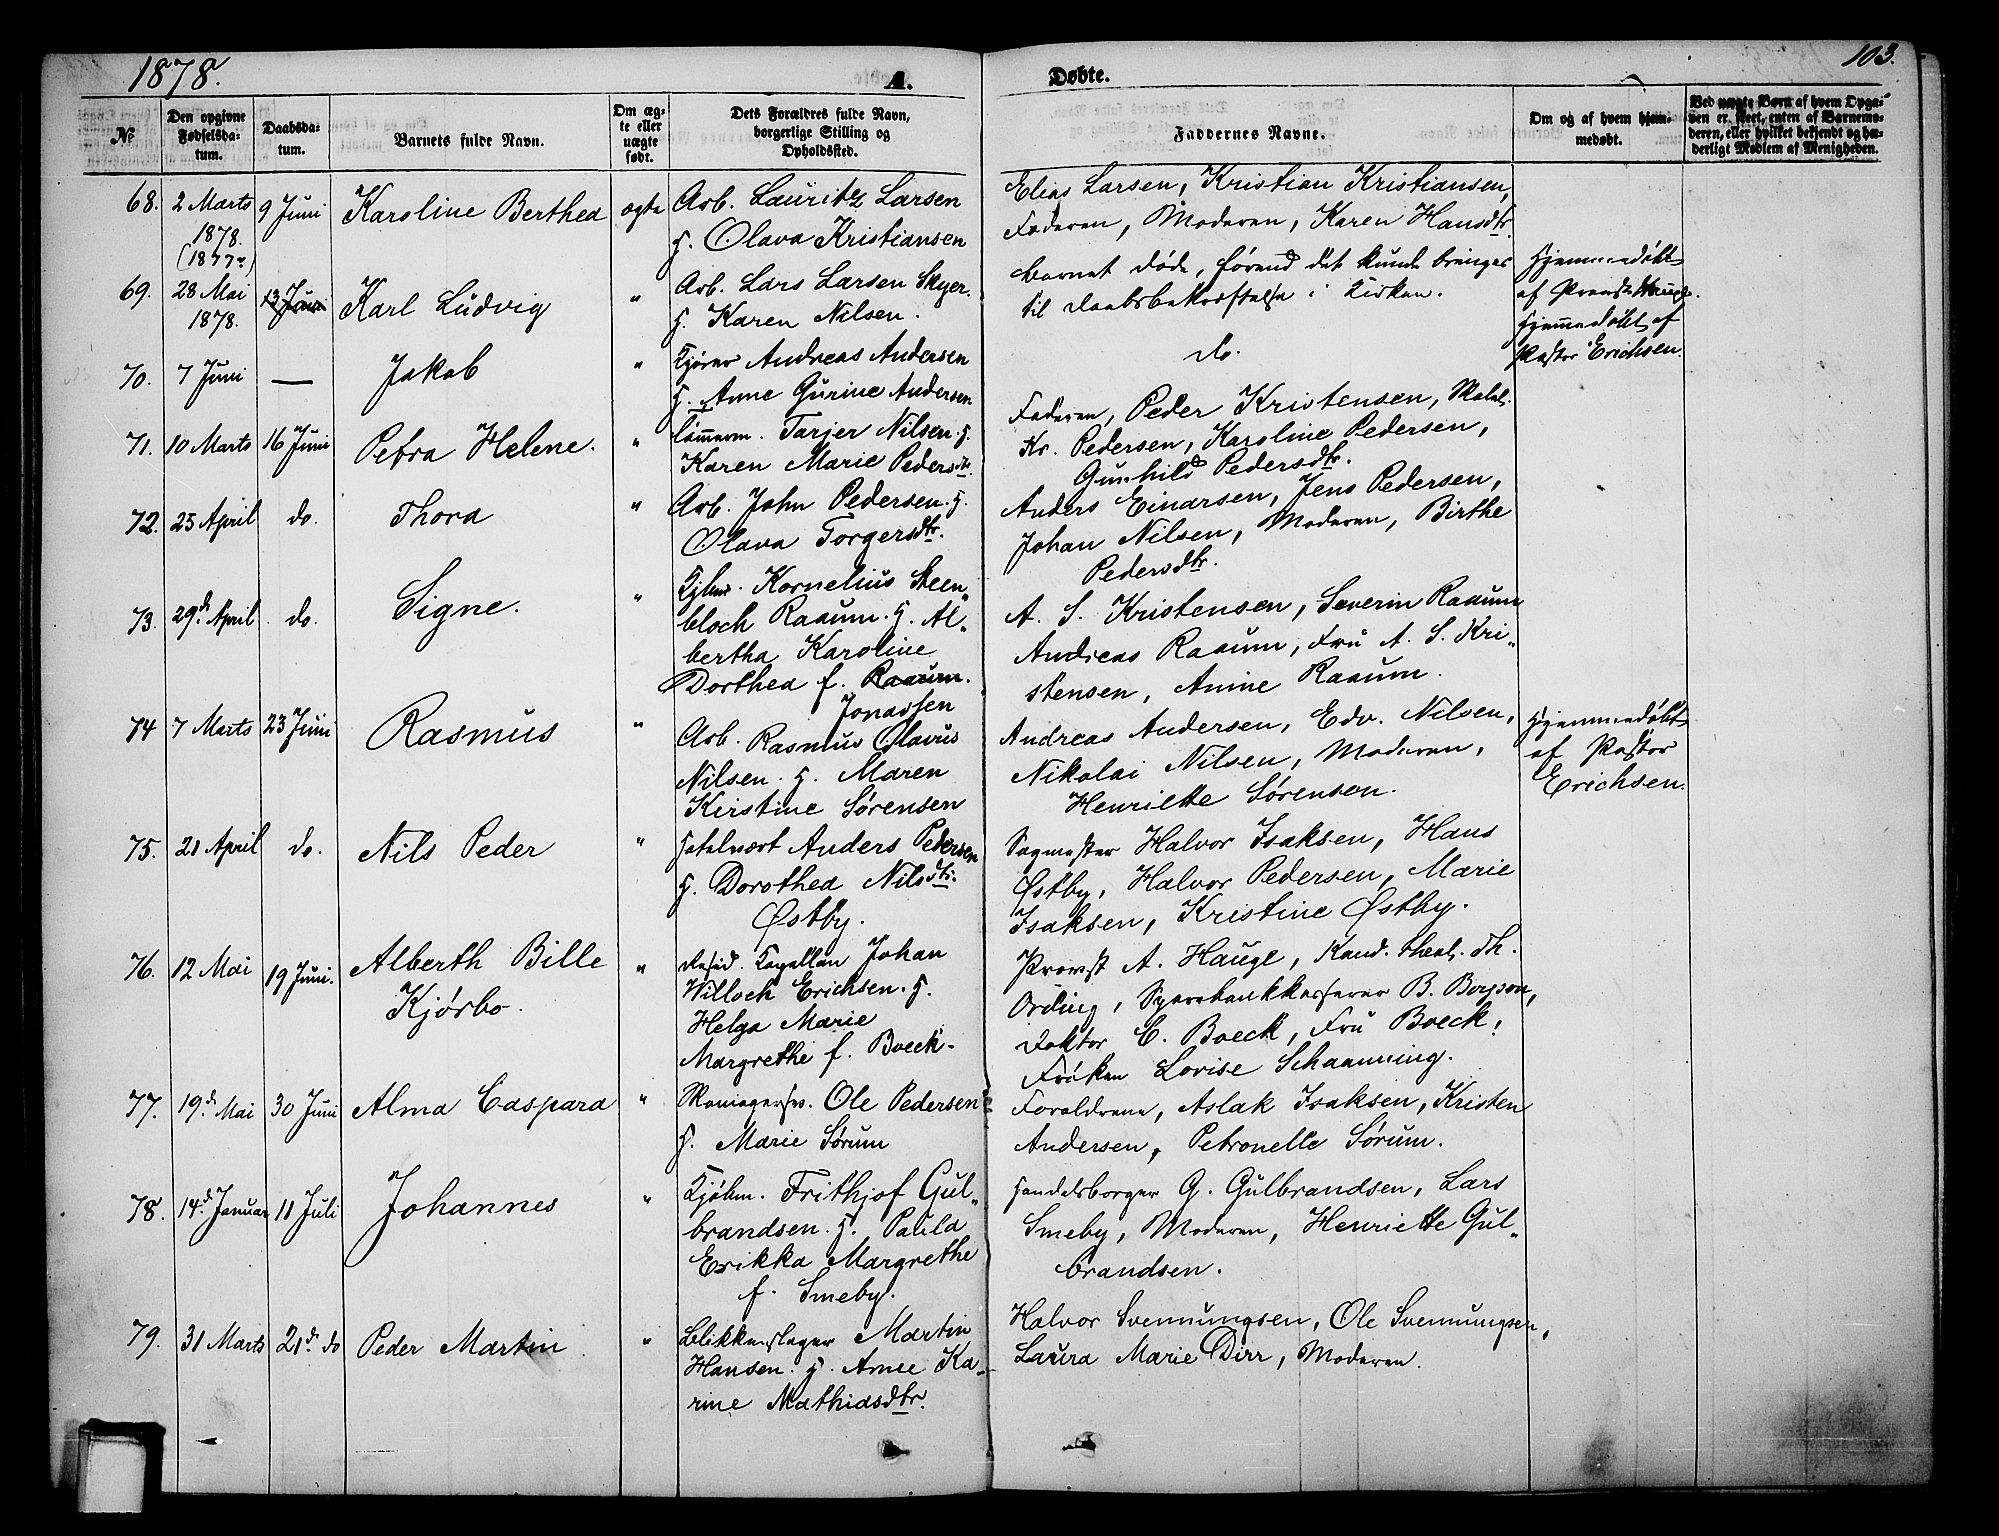 1878.
A.
Døbte.
103.
№
Den opgivne Fødselsdatum.
Daabsdatum.
Barnets fulde Navn.
Om ægte eller uægte født.
Dets Forældres fulde Navn, borgerlige Stilling og Opholdssted.
Faddernes Navne.
Om og af hvem hjemmedøbt.
Ved uægte Børn af hvem Opgaven er skeet, enten af Barnemoderen, eller hvilket bekjendt og hæderligt Medlem af Menigheden.
68. 2 Marts 1878. (1877?)
9 Juni
Karoline Berthea
ægte
Arb. Lauritz Larsen
H. Olava Kristiansen
Elias Larsen, Kristian Kristiansen,
Faderen, Moderen, Karen Hansdtr.
69. 28 Mai 1878.
13 Juni
Karl Ludvig
"
Arb. Lars Larsen Skyer.
H. Karen Nilsen.
Barnet døde, førend det kunde bringes
til Daabsbekræftelse i Kirken.
Hjemmedøbt
af Provst Hauge.
70. 7 Juni
—
Jakob
"
Kjører Andreas Andersen
H. Anne Gurine Andersen
do.
Hjemmedøbt af
Pastor Erichsen.
71. 10 Marts
16 Juni
Petra Helene.
"
Tømmerm. Tarjer Nilsen. H.
Karen Marie Pedersdtr.
Faderen, Peder Kristensen,
Kr. Pedersen, Karoline Pedersen,
Gunhild Pedersdtr.
72. 25 April
do.
Thora
"
Arb. John Pedersen. H.
Olava Torgersdtr.
Anders Einarsen, Jens Pedersen,
Johan Nilsen, Moderen, Birthe
Pedersdtr.
73. 29de April
do.
Signe.
"
Kjbm. Kornelius Steen-
bloch Raaum. H. Al-
bertha Karoline
Dorthea f. Raaum.
Jonassen
A. S. Kristensen, Severin Raaum
Andreas Raaum, Fru A. S. Kri-
stensen, Amine Raaum.
74 7 Marts
23 Juni
Rasmus
"
Arb. Rasmus Olavus
Nilsen. H. Maren
Kirstine Sørensen
Andreas Andersen, Edv. Nilsen,
Nikolai Nilsen, Moderen,
Henriette Sørensen.
Hjemmedøbt
af Pastor
Erichsen.
75. 21 April
do.
Nils Peder
"
Hotelvært Anders Pedersen
H. Dorothea Nilsdtr.
Østby.
Sagmester Halvor Isaksen, Hans
Østby, Halvor Pedersen, Marie
Isaksen, Kristine Østby.
76. 12 Mai
19 Juni.
Alberth Bille
Kjørbo.
"
Resid. Kapellan Johan
Willoch Erichsen. H.
Helga Marie
Margrethe f. Boeck.
Provst A. Hauge, Kand. theol. Th.
Ording, Sparebankkasserer B. Borgson,
Doktor C. Boeck, Fru Boeck,
Frøken Lovise Schaanning.
77. 19de Mai
30 Juni
Alma Caspara
"
Skomagersv. Ole Pedersen
H. Marie Sørum
Forældrene, Aslak Isaksen, Kristen
Andersen, Petronelle Sørum.
78. 14de Januar
11 Juli
Johannes
"
Kjøbm. Frithjof Gul-
brandsen. H. Paula
Erikka Margrethe
f. Smeby.
Handelsborger G. Gulbrandsen, Lars
Smeby, Moderen, Henriette Gul-
brandsen.
79. 31 Marts
21de do
Peder Martin
"
Blikkenslager Martin
Hansen. H. Anne Ka-
rine Mathiasdtr.
Halvor Svennungsen, Ole Svennungsen,
Laura Marie Dirr, Moderen.